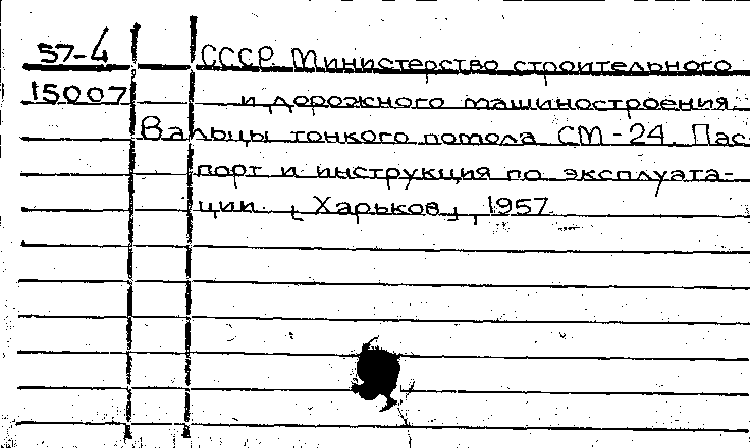 57-4 СССР. Министерство строительного
15007 и дорожного машиностроения.
Вальцы тонкого помола СМ-24. Пас-
порт и инструкция по эксплуата-
ции. [Харьков], 1957